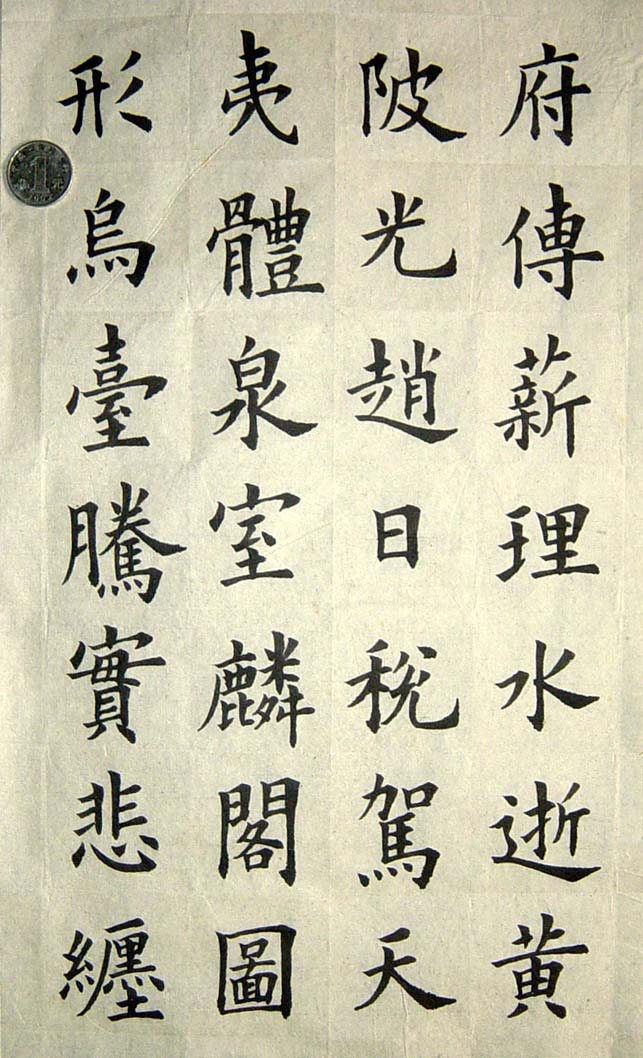 府傳薪理水逝黄
陂光趙日稅駕天
夷體泉室麟閣圖
形烏臺騰實悲纏
1